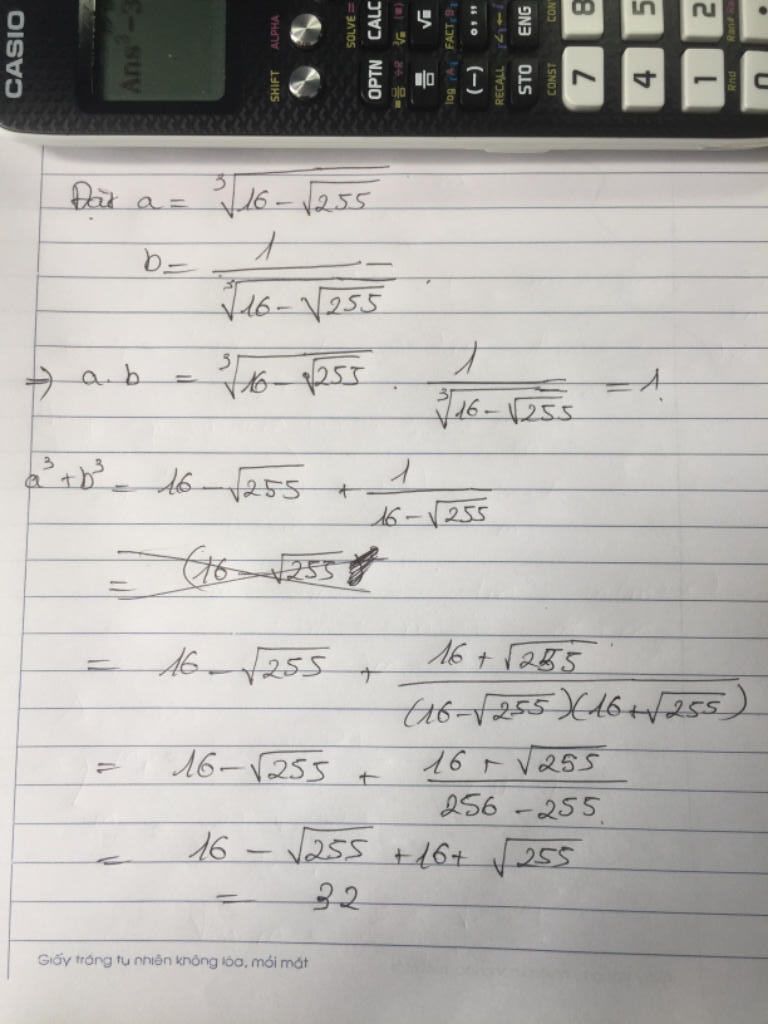 CASIO
Ans³-3
ALPHA SOLVE = CALC
SHIFT OPTN
FACT ENG
log (−) RECALL STO CONST
8 5 2
7 4 1 0
Rnd Ran#
Đặt a = ∛(16 - √255)
b = 1/∛(16 - √255)
=> a.b = ∛(16 - √255) . 1/∛(16 - √255) = 1.
a³ + b³ = 16 - √255 + 1/(16 - √255)
= (16 - √255
= 16 - √255 + (16 + √255)/((16 - √255)(16 + √255))
= 16 - √255 + (16 + √255)/(256 - 255)
= 16 - √255 + 16 + √255
= 32
Giấy trắng tự nhiên không lóa, mỏi mắt